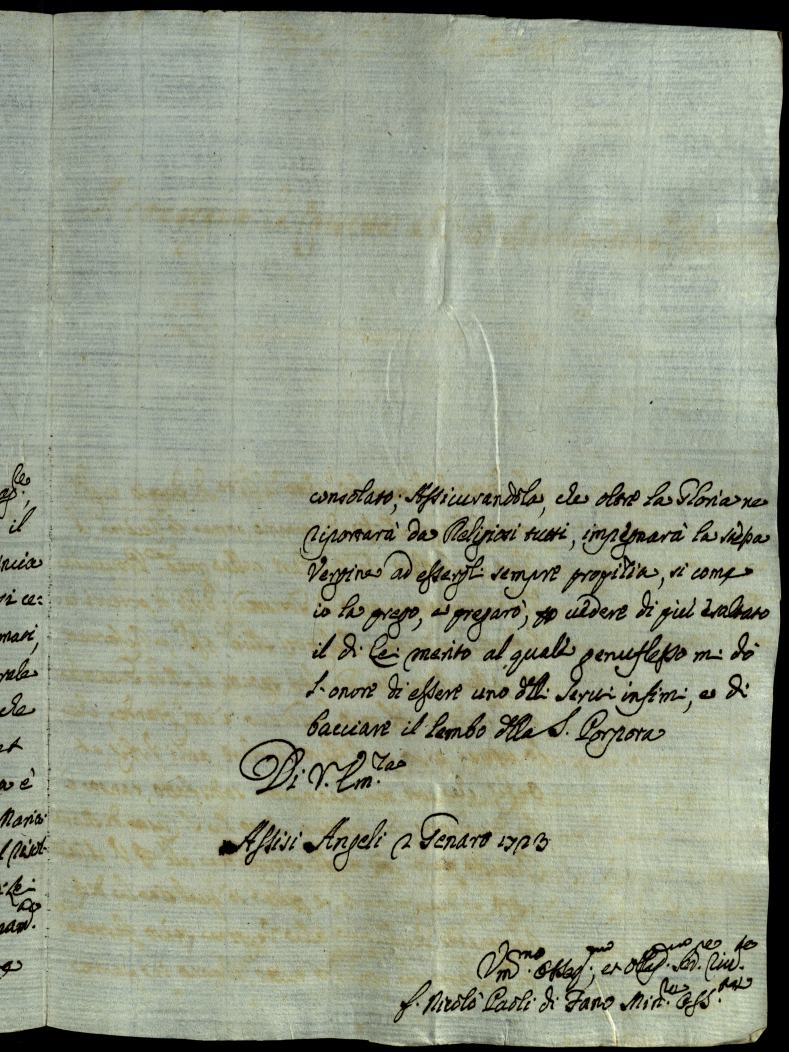 il
ncia
ri ce:
mari,
rale
che
et
a è
Maria
consolato; Assicurandola, che oltre la Gloria ne
riportarà da Religiosi tutti, impegnarà la stessa
Vergine ad essergl: sempre propitia, si come
io la prego, e pregarò, p vedere di più esaltato
il di Lei merito al quale genuflesso mi dò
l'onore di essere uno dell: Servi infimi, e di
bacciare il lembo della S. Porpora
Di V. Em.za
Assisi Angeli 2 Genaro 1723
Um.mo Osseq.mo, et Oblig.mo Ser.re
f. Nicolò Paoli di Fano Min.